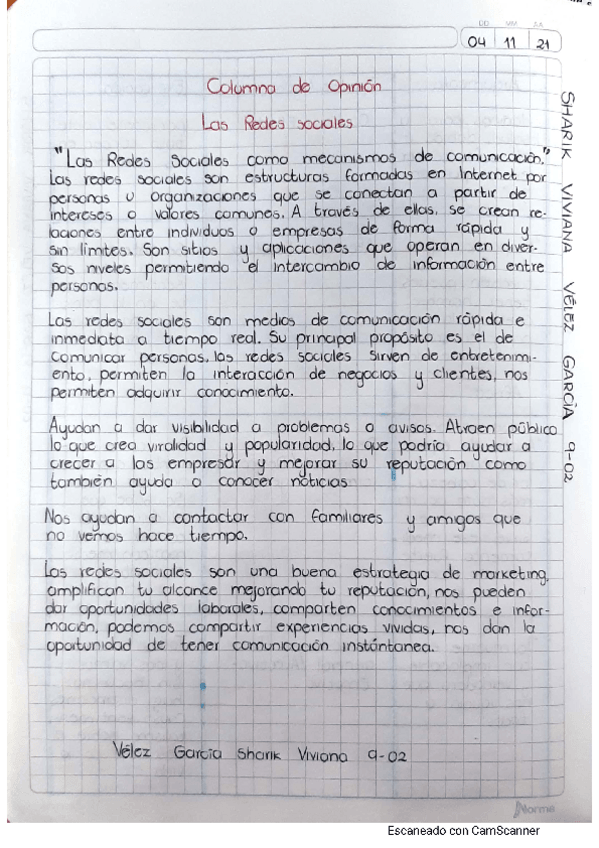 DD MM AA
04 11 21
Columna de Opinión
Las Redes sociales
"Las Redes Sociales como mecanismos de comunicación."
Las redes sociales son estructuras formadas en Internet por
personas u organizaciones que se conectan a partir de
intereses o valores comunes. A través de ellas, se crean re-
laciones entre individuos o empresas de forma rápida y
sin límites. Son sitios y aplicaciones que operan en diver-
sos niveles permitiendo el intercambio de información entre
personas.
Las redes sociales son medios de comunicación rápida e
inmediata a tiempo real. Su principal propósito es el de
comunicar personas, las redes sociales sirven de entretenimi-
ento, permiten la interacción de negocios y clientes, nos
permiten adquirir conocimiento.
Ayudan a dar visibilidad a problemas o avisos. Atraen público
lo que crea viralidad y popularidad, lo que podría ayudar a
crecer a las empresar y mejorar su reputación como
también ayuda a conocer noticias
Nos ayudan a contactar con familiares y amigos que
no vemos hace tiempo.
Las redes sociales son una buena estrategia de marketing,
amplifican tu alcance mejorando tu reputación, nos pueden
dar oportunidades laborales, comparten conocimientos e infor-
mación, podemos compartir experiencias vividas, nos dan la
oportunidad de tener comunicación instántanea.
Vélez García Sharik Viviana 9-02
SHARIK VIVIANA VÉLEZ GARCÍA 9-02
Norma
Escaneado con CamScanner